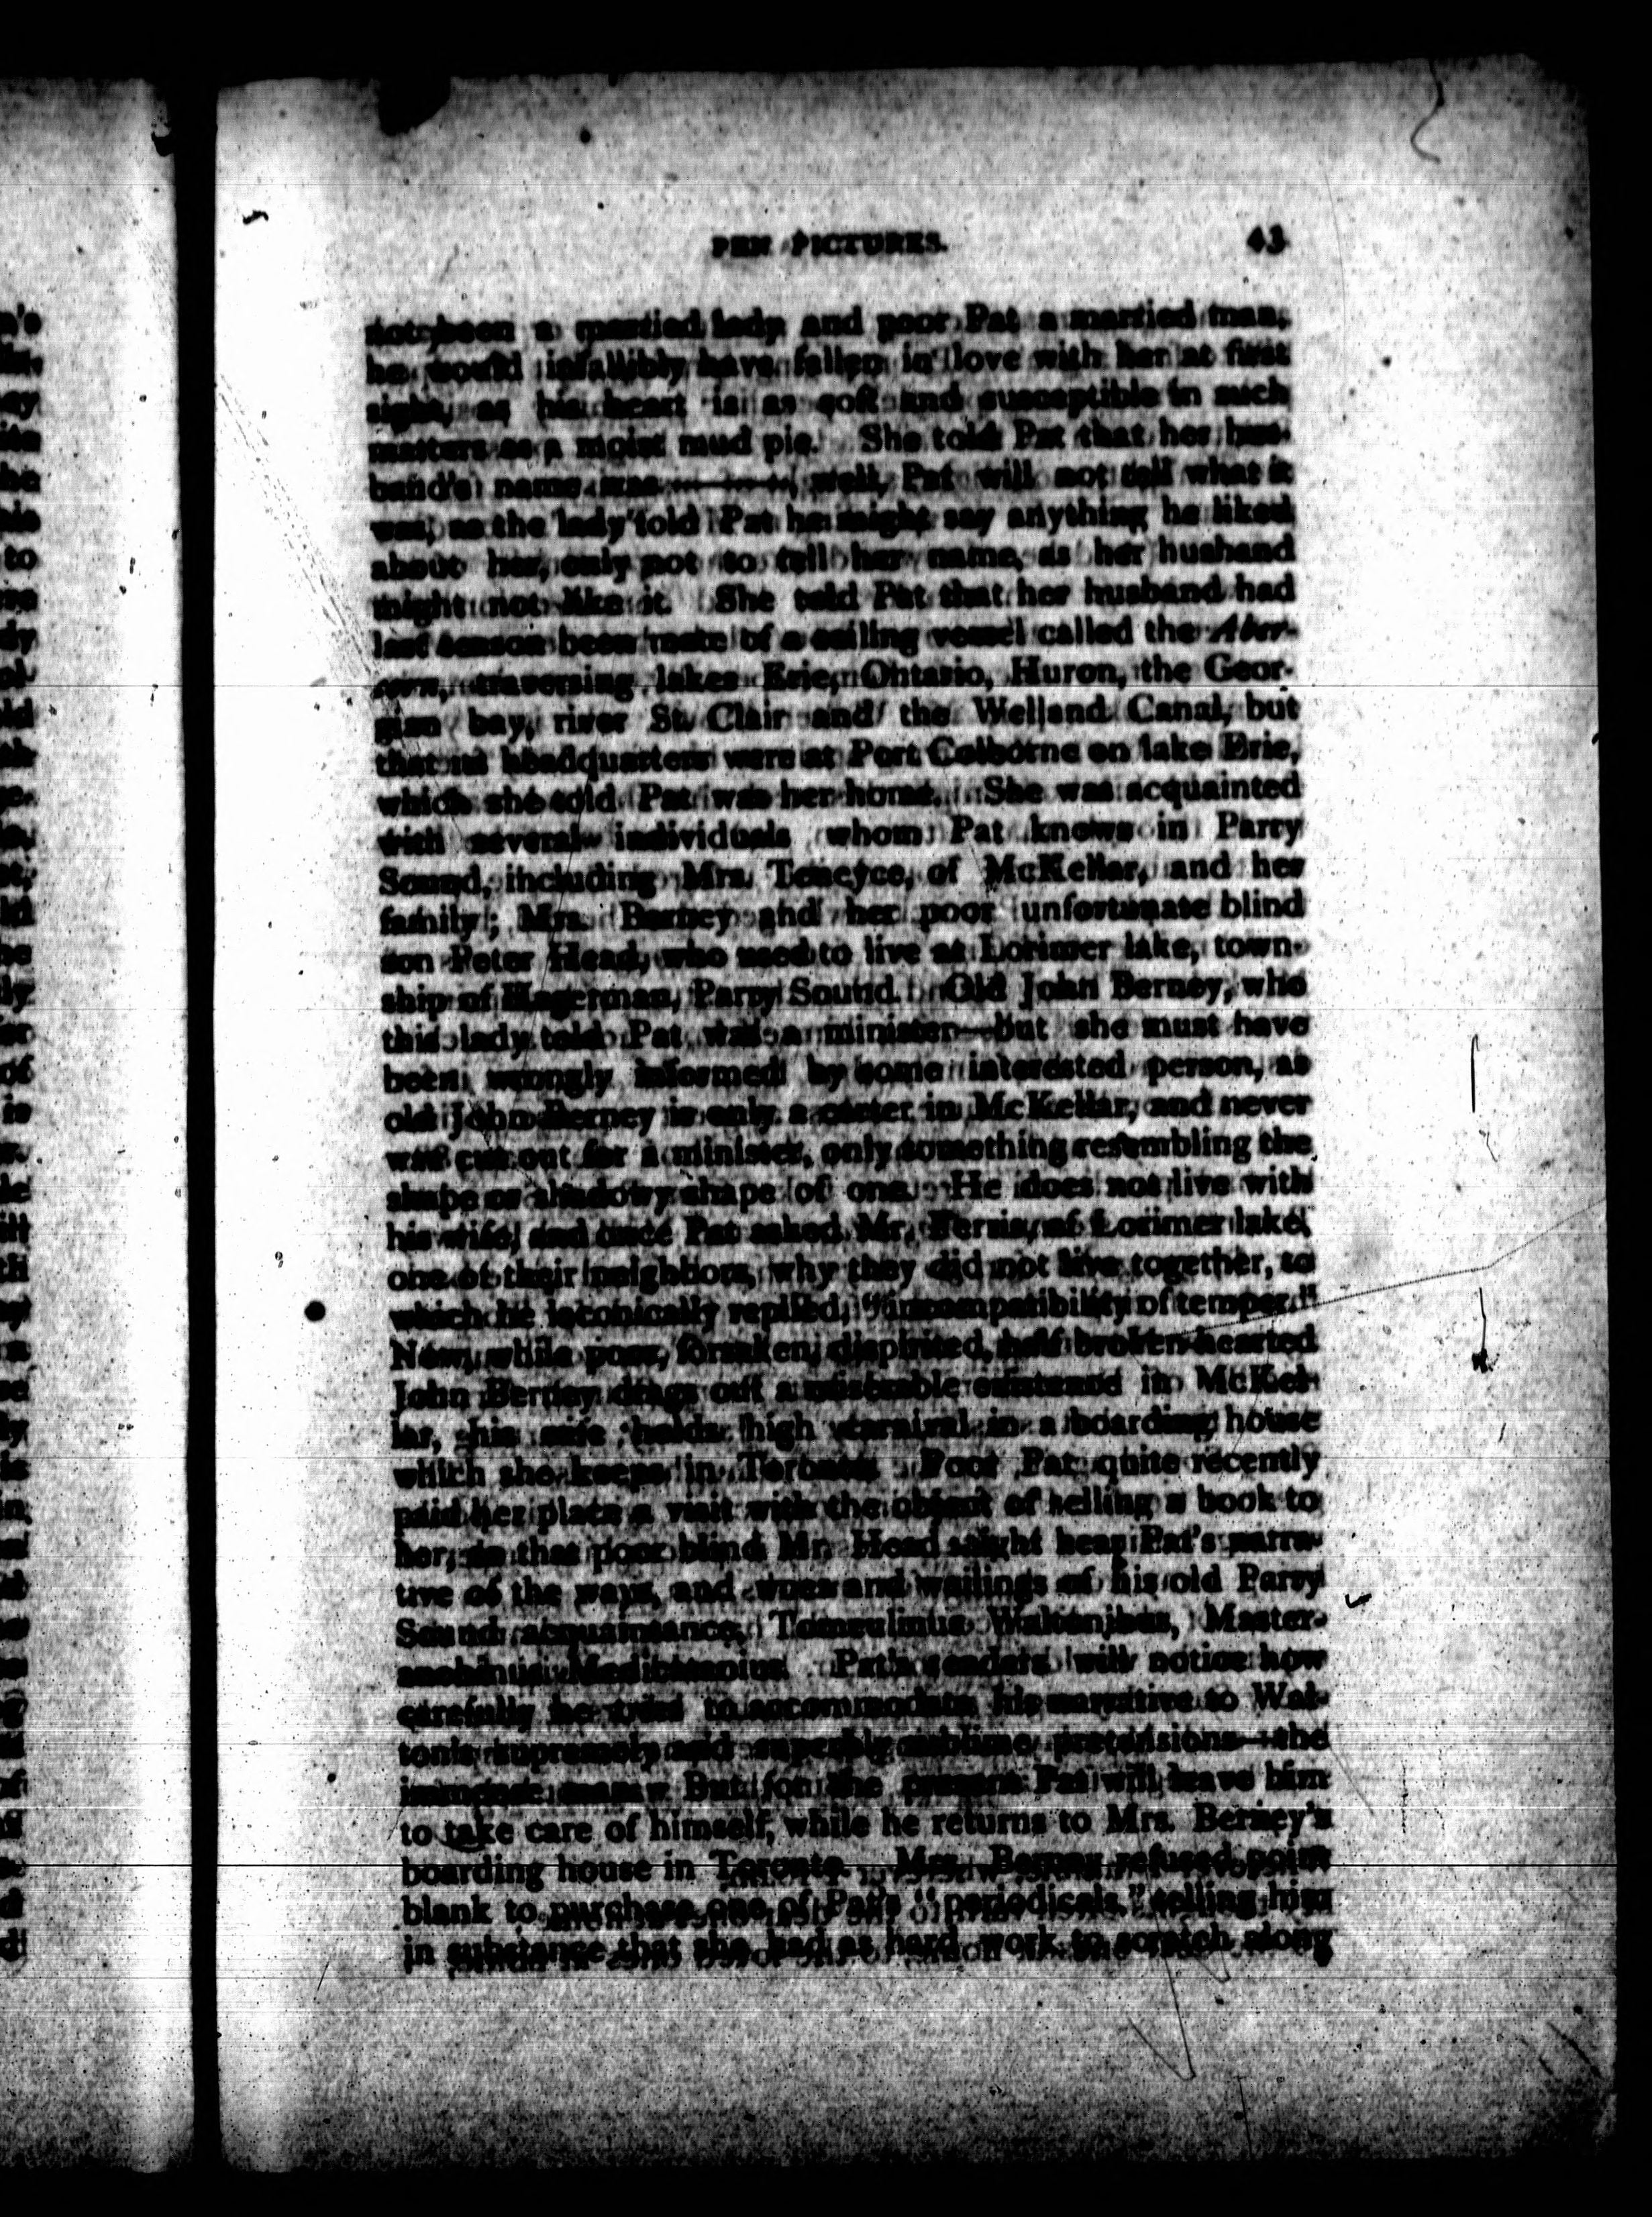 PEN PICTURES. 43
not been a married lady and poor Pat a married man,
he would infallibly have fallen in love with her at first
sight, as his heart is as soft and susceptible in such
matters as a moist mud pie. She told Pat that her hus-
band's name was ———, well, Pat will not tell what it
was, as the lady told Pat he might say anything he liked
about her, only not to tell her name, as her husband
might not like it. She told Pat that her husband had
last season been mate of a sailing vessel called the
traversing lakes Erie, Ontario, Huron, the Geor-
gian bay, river St. Clair and the Welland Canal, but
that its headquarters were at Port Colborne on lake Erie,
which she told Pat was her home. She was acquainted
with several individuals whom Pat knows in Parry
Sound, including Mrs. Teneyce, of McKellar, and her
family; Mrs. Berney and her poor unfortunate blind
son Peter Head, who used to live at Lorimer lake, town-
ship of Hagerman, Parry Sound. Old John Berney, who
this lady told Pat was a minister—but she must have
been wrongly informed by some interested person, as
old John Berney is only a carter in McKellar, and never
was cut out for a minister, only something resembling the
shape or shadowy shape of one. He does not live with
his wife, and once Pat asked Mr. Ferris, of Lorimer lake,
one of their neighbors, why they did not live together, to
which he laconically replied, "incompatibility of temper."
Now, while poor, forsaken, dispirited, half broken-hearted
John Berney drags out a miserable existence in McKel-
lar, his wife holds high carnival in a boarding house
which she keeps in Toronto. Poor Pat quite recently
paid her place a visit with the object of selling a book to
her, so that poor blind Mr. Head might hear Pat's narra-
tive of the ways, and woes and wailings of his old Parry
Sound acquaintance, Master-
Pat's readers will notice how
carefully he tries to accommodate his narrative to Wat-
ton's supremely and superbly sublime pretensions—the
But for the present Pat will leave him
to take care of himself, while he returns to Mrs. Berney's
boarding house in Toronto. Mrs. Berney refused point
blank to purchase one of Pat's "periodicals," telling him
in substance that she had as hard work to scratch along